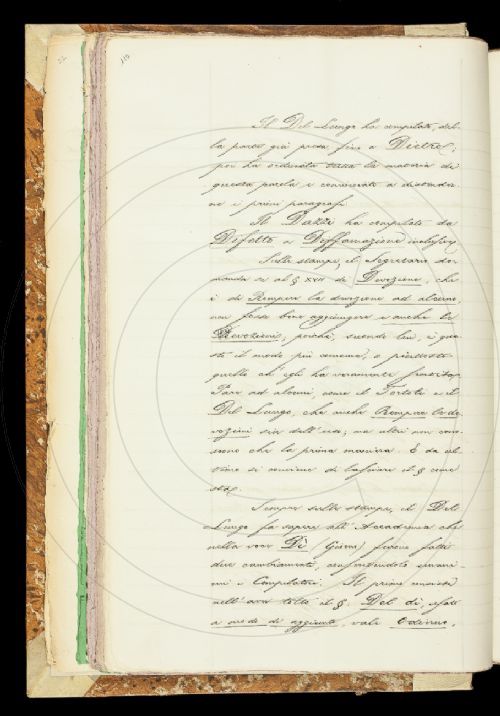 110
Il Del Lungo ha compilato, del-
la parca già presa fino a Dietro;
poi ha ordinata tutta la materia di
questa parola e cominciato a distender-
ne i primi paragrafi.
Il Dazzi ha compilato da
Difetto a Diffamazione inclusive.
Sulle stampe, il Segretario do-
manda se al § XXII di Devozione, che
è di Rompere la devozione ad alcuno,
non fosse bene aggiungere e anche le
Devozioni, poichè, secondo lui, è que-
sto il modo più comune, o piuttosto
quello ch'egli ha veramente sentito.
Pare ad alcuni, come il Tortoli e il
Del Lungo, che anche Rompere le de-
vozioni sia dell'uso; ma altri non cono-
scono che la prima maniera. E da ul-
timo si conviene di lasciare il § come
sta.
Sempre sulle stampe, il Del
Lungo fa sapere all'Accademia che
nella voce Dì (Giorno) furono fatti
due cambiamenti,
ni e Compilatori. Il primo consiste
nell'aver tolto il §. Del dì, usato
a modo di aggiunto, vale Odierno,